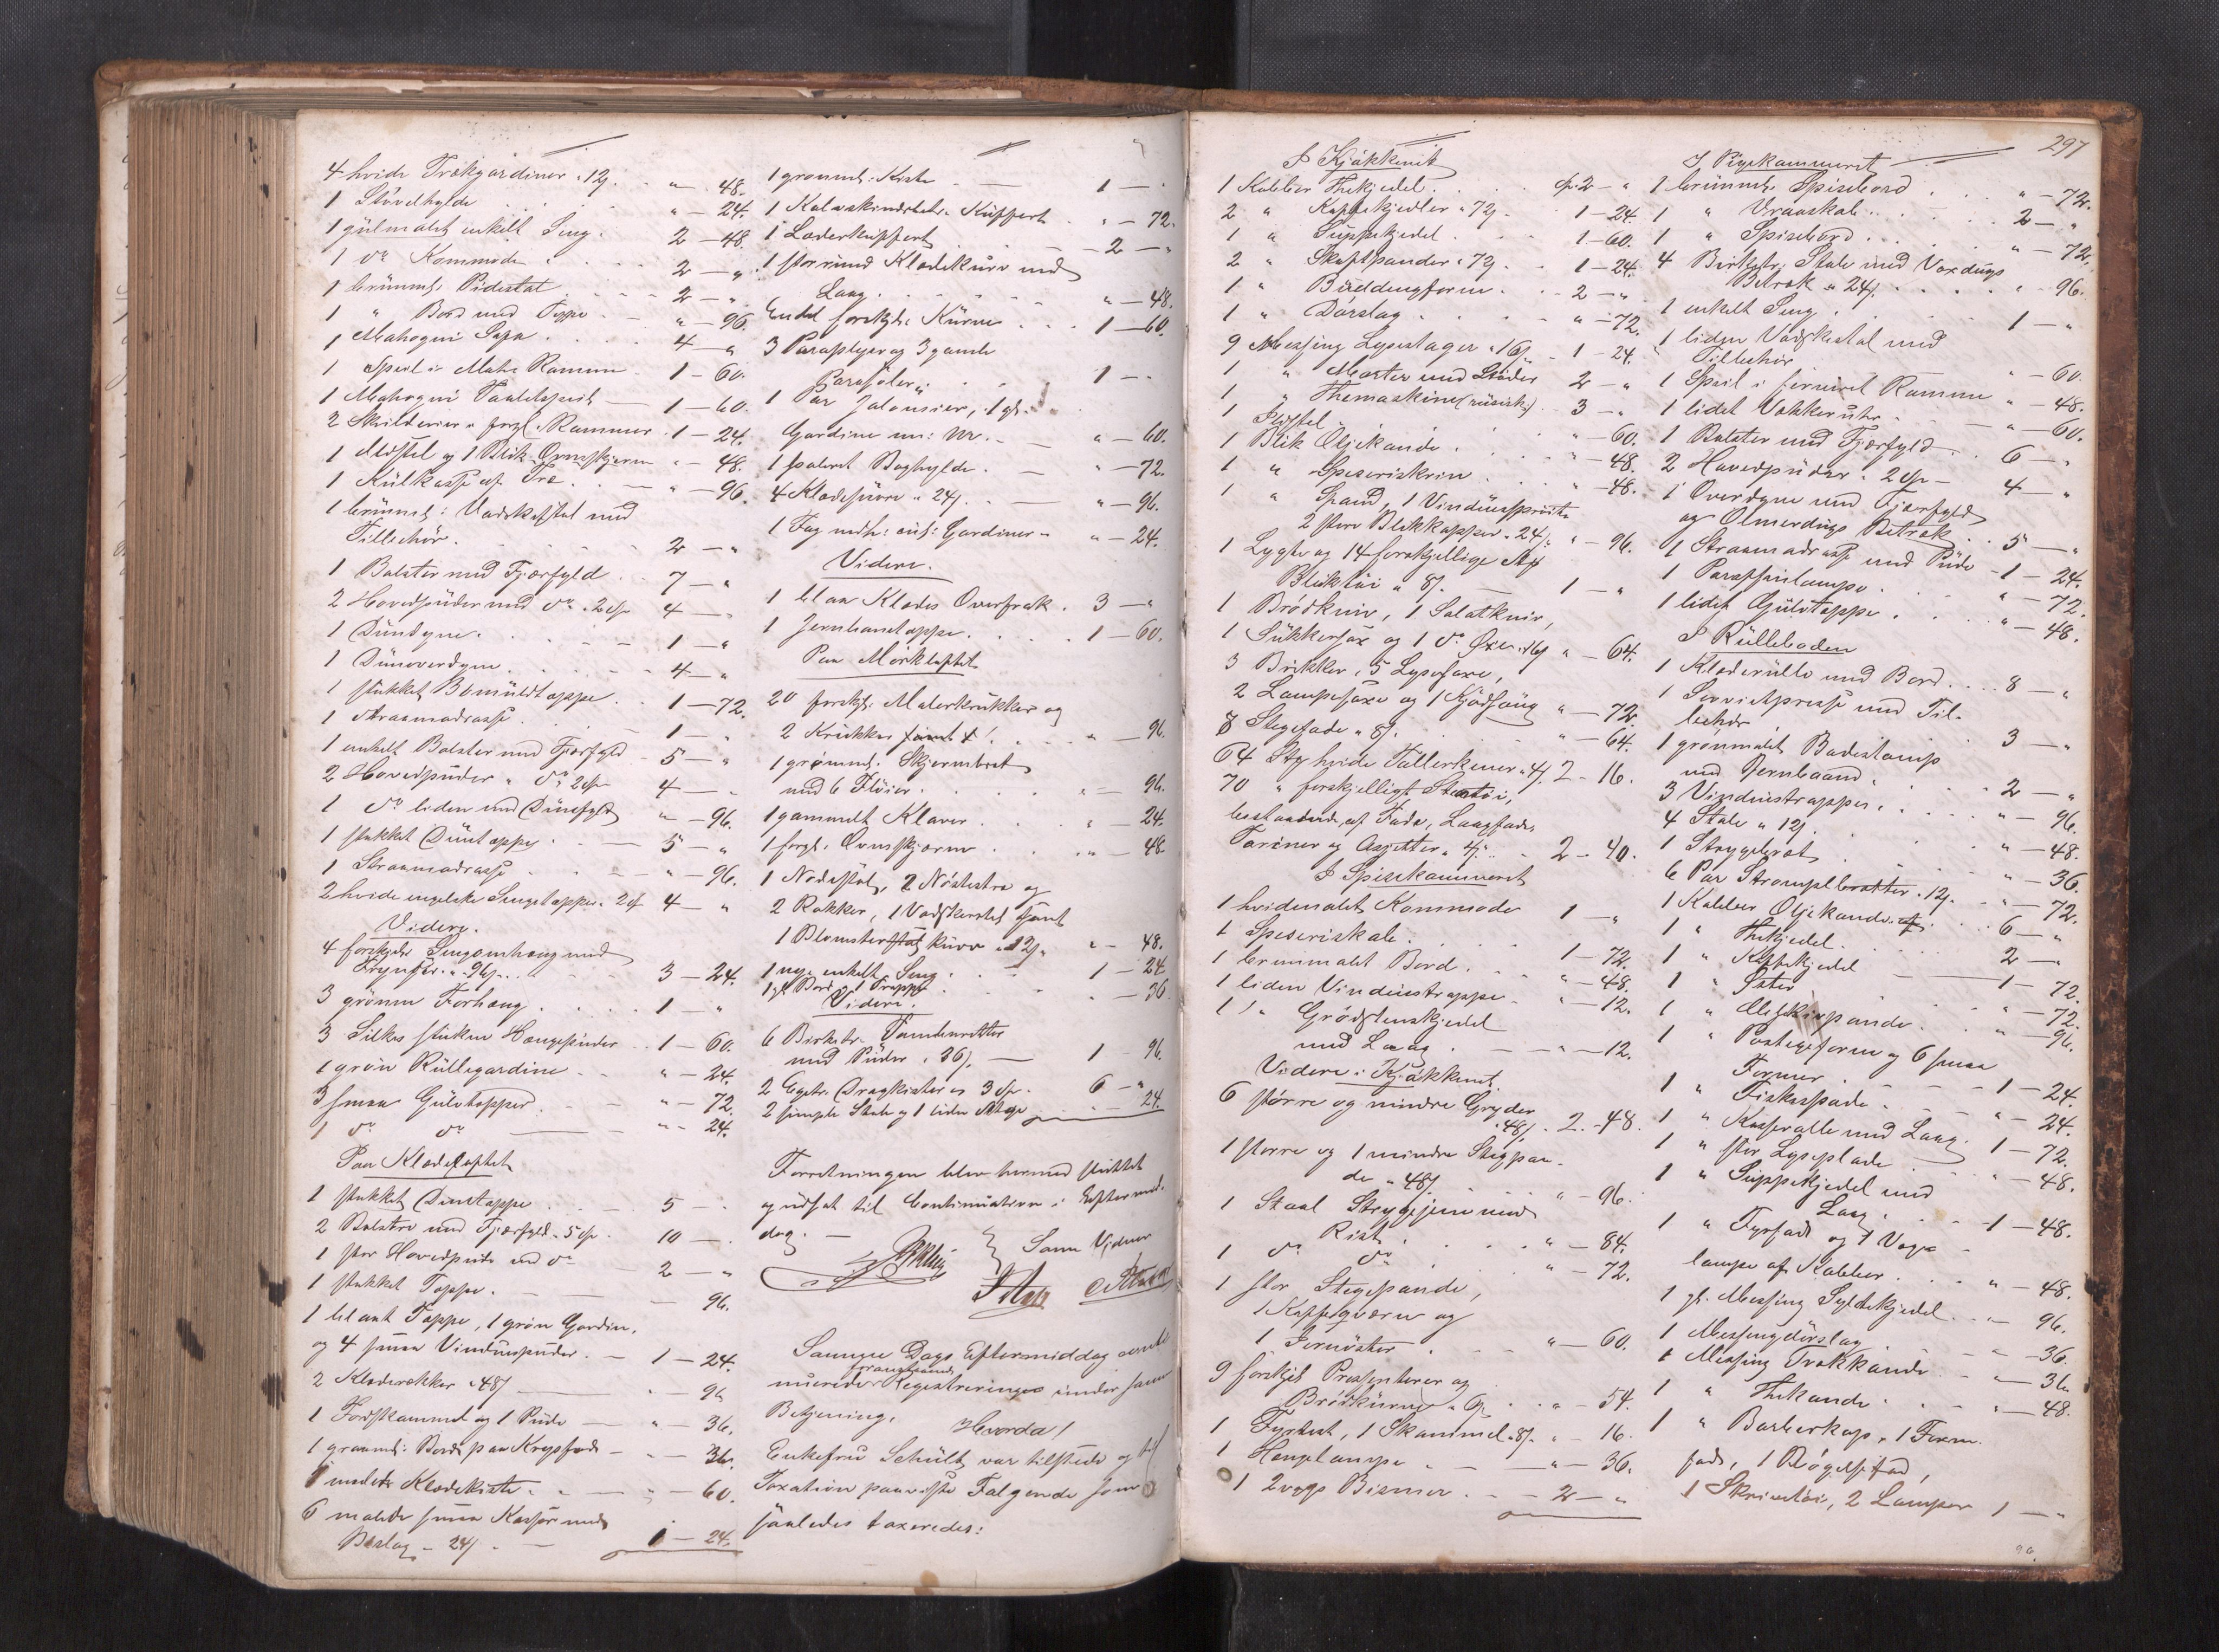 4 hvide Trækgardiner à 12ß. " - 48.
1 Stövelhylde " - 24.
1 gulmalet enkelt Seng. 2 - 48.
1 do Kommode 2 - "
1 brunmt. Pidestal 2 - "
1 " Bord med Teppe " - 96.
1 Mahogni Sofa 4 - "
1 Speil i Mahe Ramme 1 - 60.
1 Mahogni Toiletspeil 1 - 60.
2 Skilderier i forgl. Rammer 1 - 24.
1 og 1 Blik Ovnsskjerm " - 48.
1 Kulkasse af Træ " - 96.
1 brunmt: Vadskestol med
Tillehör. 2 - "
1 Bolster med Fjærfyld 7 - "
2 Hovedpuder med do à 2 4 - "
1 Dundyne. 1 - "
1 Dunoverdyne 4 - "
1 stukket Bomuldteppe 1 - 72.
1 Straamadrasse 1 - "
1 enkelt Bolster med Fjærfyld 5 - "
2 Hovedpuder " do 4 - "
1 do liden med Dunefyld " - 96.
1 stukket Duntæppe 5 - "
1 Straamadrasse " - 96.
2 hvide engelske Sengetæpper 4 - "
Videre.
4 forskjelle Sengomhæng med
Frynser à 96ß. 3 - 24.
3 grönne Forhæng 1 - "
3 Silkes stukne Hængepuder 1 - 60.
1 grön Rullegardine " - 24.
3 smaa Gulvtæpper " - 72.
1 do do " - 24.
Paa Klædeloftet
1 stukket Duntæppe 5 -
2 Bolstre med Fjærfyld à 5 10 -
1 stor Hovedpude med do 2 - "
1 stukket Teppe. - 96.
1 blaat Tæppe, 1 grön Gardin,
og 4 smaa Vinduspuder. 1 - 24.
2 Klæderækker à 48ß - 96
1 Fodskammel og 1 Pude " - 36.
1 graamt: Bord paa Krydsfod - 36.
1 malede Klædekiste " - 60.
6 malede smaa Kasser med
Beslag à 24ß. 1 - 24.
1 grønmt: Kiste 1 - "
1 Kalveskindsbetr. Kuffert " - 72.
1 Læderkuffert 2 - "
1 stor rund Klædekurv med
Laag. " - 48.
Endel forskjel. Kurve 1 - 60.
3 Paraplyer og 3 gamle
Parasoler 1 - "
1 Par Jalousier, 1 gl.
Gardine m: M. " - 60.
1 poleret Boghylde. " - 72.
4 Klædesnore à 24ß. " - 96.
1 Fag Gardiner " - 24.
Videre.
1 blaa Klædes Overfrak. 3 - "
1 Jernbanetæppe 1 - 60.
Paa Mörkloftet
20 forskjl. Malerkrukker og
2 Krukker " - 96.
1 grönmt. Skjermbret
med 6 Flöier. " - 96.
1 gammelt Klaver " - 24.
1 forgl. Ovnsskjærm " - 48
1 Nodestol, 2 Nöstetræ og
2 Rokker, 1 Vadskerstol samt
1 Blomsterkurv à 12ß. " - 48.
1 nyt enkelt Seng 1 - 24
1 gl. Bord og 1 Trappe " - 36
Videre.
6 Birketr.
med Puder à 36ß. 1 - 96.
2 Egetr. Dragkister à 3 6 - "
2 simple Stole og 1 liden Stige " - 24.
Forretningen blev hermed sluttet
og udsat til Continuation i Eftermid-
dag. -
Som Vidner
Samme Dags Eftermiddag conti-
nueredes foranstaaende Registreringer under samme
Betjening.
Hvorda!
Enkefru Schultz var tilstede og til
Taxation paaviste Følgende som
saaledes taxeredes:
297
I Kjökkenet
1 Kobber Thekjedel. 2 - "
2 " Kaffekjedler à 72ß. 1 - 24.
1 " Suppekjedel. 1 - 60.
2 " Skaftpander à 72ß. 1 - 24.
1 " Buddingform. 2 - "
1 " Dörslag " - 72.
9 Messing Lysestager à 16ß 1 - 24.
1 " Morter med Stöder 2 - "
1 " Themaskine (russisk) 3 - "
1 " - 60.
1 Blik Oljekande " - 48.
1 " Speseriskrin " - 48.
1 " Spand, 1 Vindusspröite
2 store Blikkopper à 24ß. " - 96.
1 Lygte og 14 forskjellige Stk
Bliktöi à 8ß. 1 - "
1 Brödkniv, 1 Salatkniv,
1 Sukkersax og 1 do Øxe à 16ß " - 64.
3 Brikker, 5 Lysesaxe,
2 Lampesaxe og 1 Kjödsaug " - 72.
8 Stegefade à 8ß. " - 64.
64 Stk hvide Tallerkener à 4ß. 2 - 16.
70 " forskjelligt Stentöi,
bestaaende af Fade, Laagfade,
Teriner og Asjetter à 4ß. 2 - 40.
I Spisekammeret
1 hvidmalet Kommode 1 - "
1 Speseriskab. 1 - 72.
1 brunmalet Bord. " - 48.
1 liden Vindustrappe " - 12.
1 " Grödstenskjedel
med Laag. " - 12.
Videre i Kjökkenet.
6 större og mindre Gryder
à 48ß. 2 - 48.
1 större og 1 mindre Stegpan-
de à 48ß. " - 96.
1 Staal Strygejern med
Rist " - 84.
1 do do " - 72.
1 stor Stegepande,
1 Kaffeqværn og
1 Jernöster " - 60.
9 forskjel. Presenterer og
Brödkurve à 6ß. " - 54.
1 Fyrbæt, 1 Skammel à 8ß. " - 16.
1 Hænglampe " - 36.
1 2 vogs Bismer. 2 - "
I Pigekammeret
1 brunmt. Spisebord " - 72.
1 " Vraaskab. 2 - "
1 " Spisebord " - 72.
4 Birketr. Stole med Voxdugs
Betræk à 24ß. " - 96.
1 enkelt Seng. 1 - "
1 liden Vadskestol med
Tillehör " - 60.
1 Speil i fineret Ramme " - 48.
1 lidet Vækkeruhr " - 60.
1 Bolster med Fjærfyld 6 - "
2 Hovedpuder à 2 4 - "
1 Overdyne med Fjærfyld
og Olmerdugs Betræk 5 - "
1 Straamadrasse med Pude 1 - 24.
1 Paraffinlampe " - 72.
1 lidet Gulvtæppe " - 48.
I Rulleboden
1 Klæderulle med Bord. 8 - "
1 Servietpresse med Til-
lehör 3 - "
1 grönmalet Badestamp
med Jernbaand 2 - "
3 Vindustrapper " - 96.
4 Stole à 12ß. " - 48.
1 Strygebræt " - 36.
6 Par Strømpebrætter à 12ß. " - 72.
1 Kobber Oljekande 6 - "
1 " Thekjedel. 2 - "
1 " Kaffekjedel 1 - 72.
1 " " - 72.
1 " Æbleskivepande " - 96.
1 " Posteiform og 6 smaa
Former 1 - 24.
1 " Fiskespade " - 24.
1 " Kasserolle med Laag. 1 - 72.
1 " stor Lyseplade " - 48.
1 " Suppekjedel med
Laag 1 - 48.
1 " Fyrfad og 1 Voge-
lampe af Kobber " - 48.
1 gl. Messing Syltekjedel " - 96.
1 Messingdörslag " - 36.
1 Messing Trækkande " - 36
1 " Thekande " - 48.
1 " Barberkop, 1 Form-
fad, 1 Rögelsefad,
1 Skrivetöi, 2 Lamper 1 - "